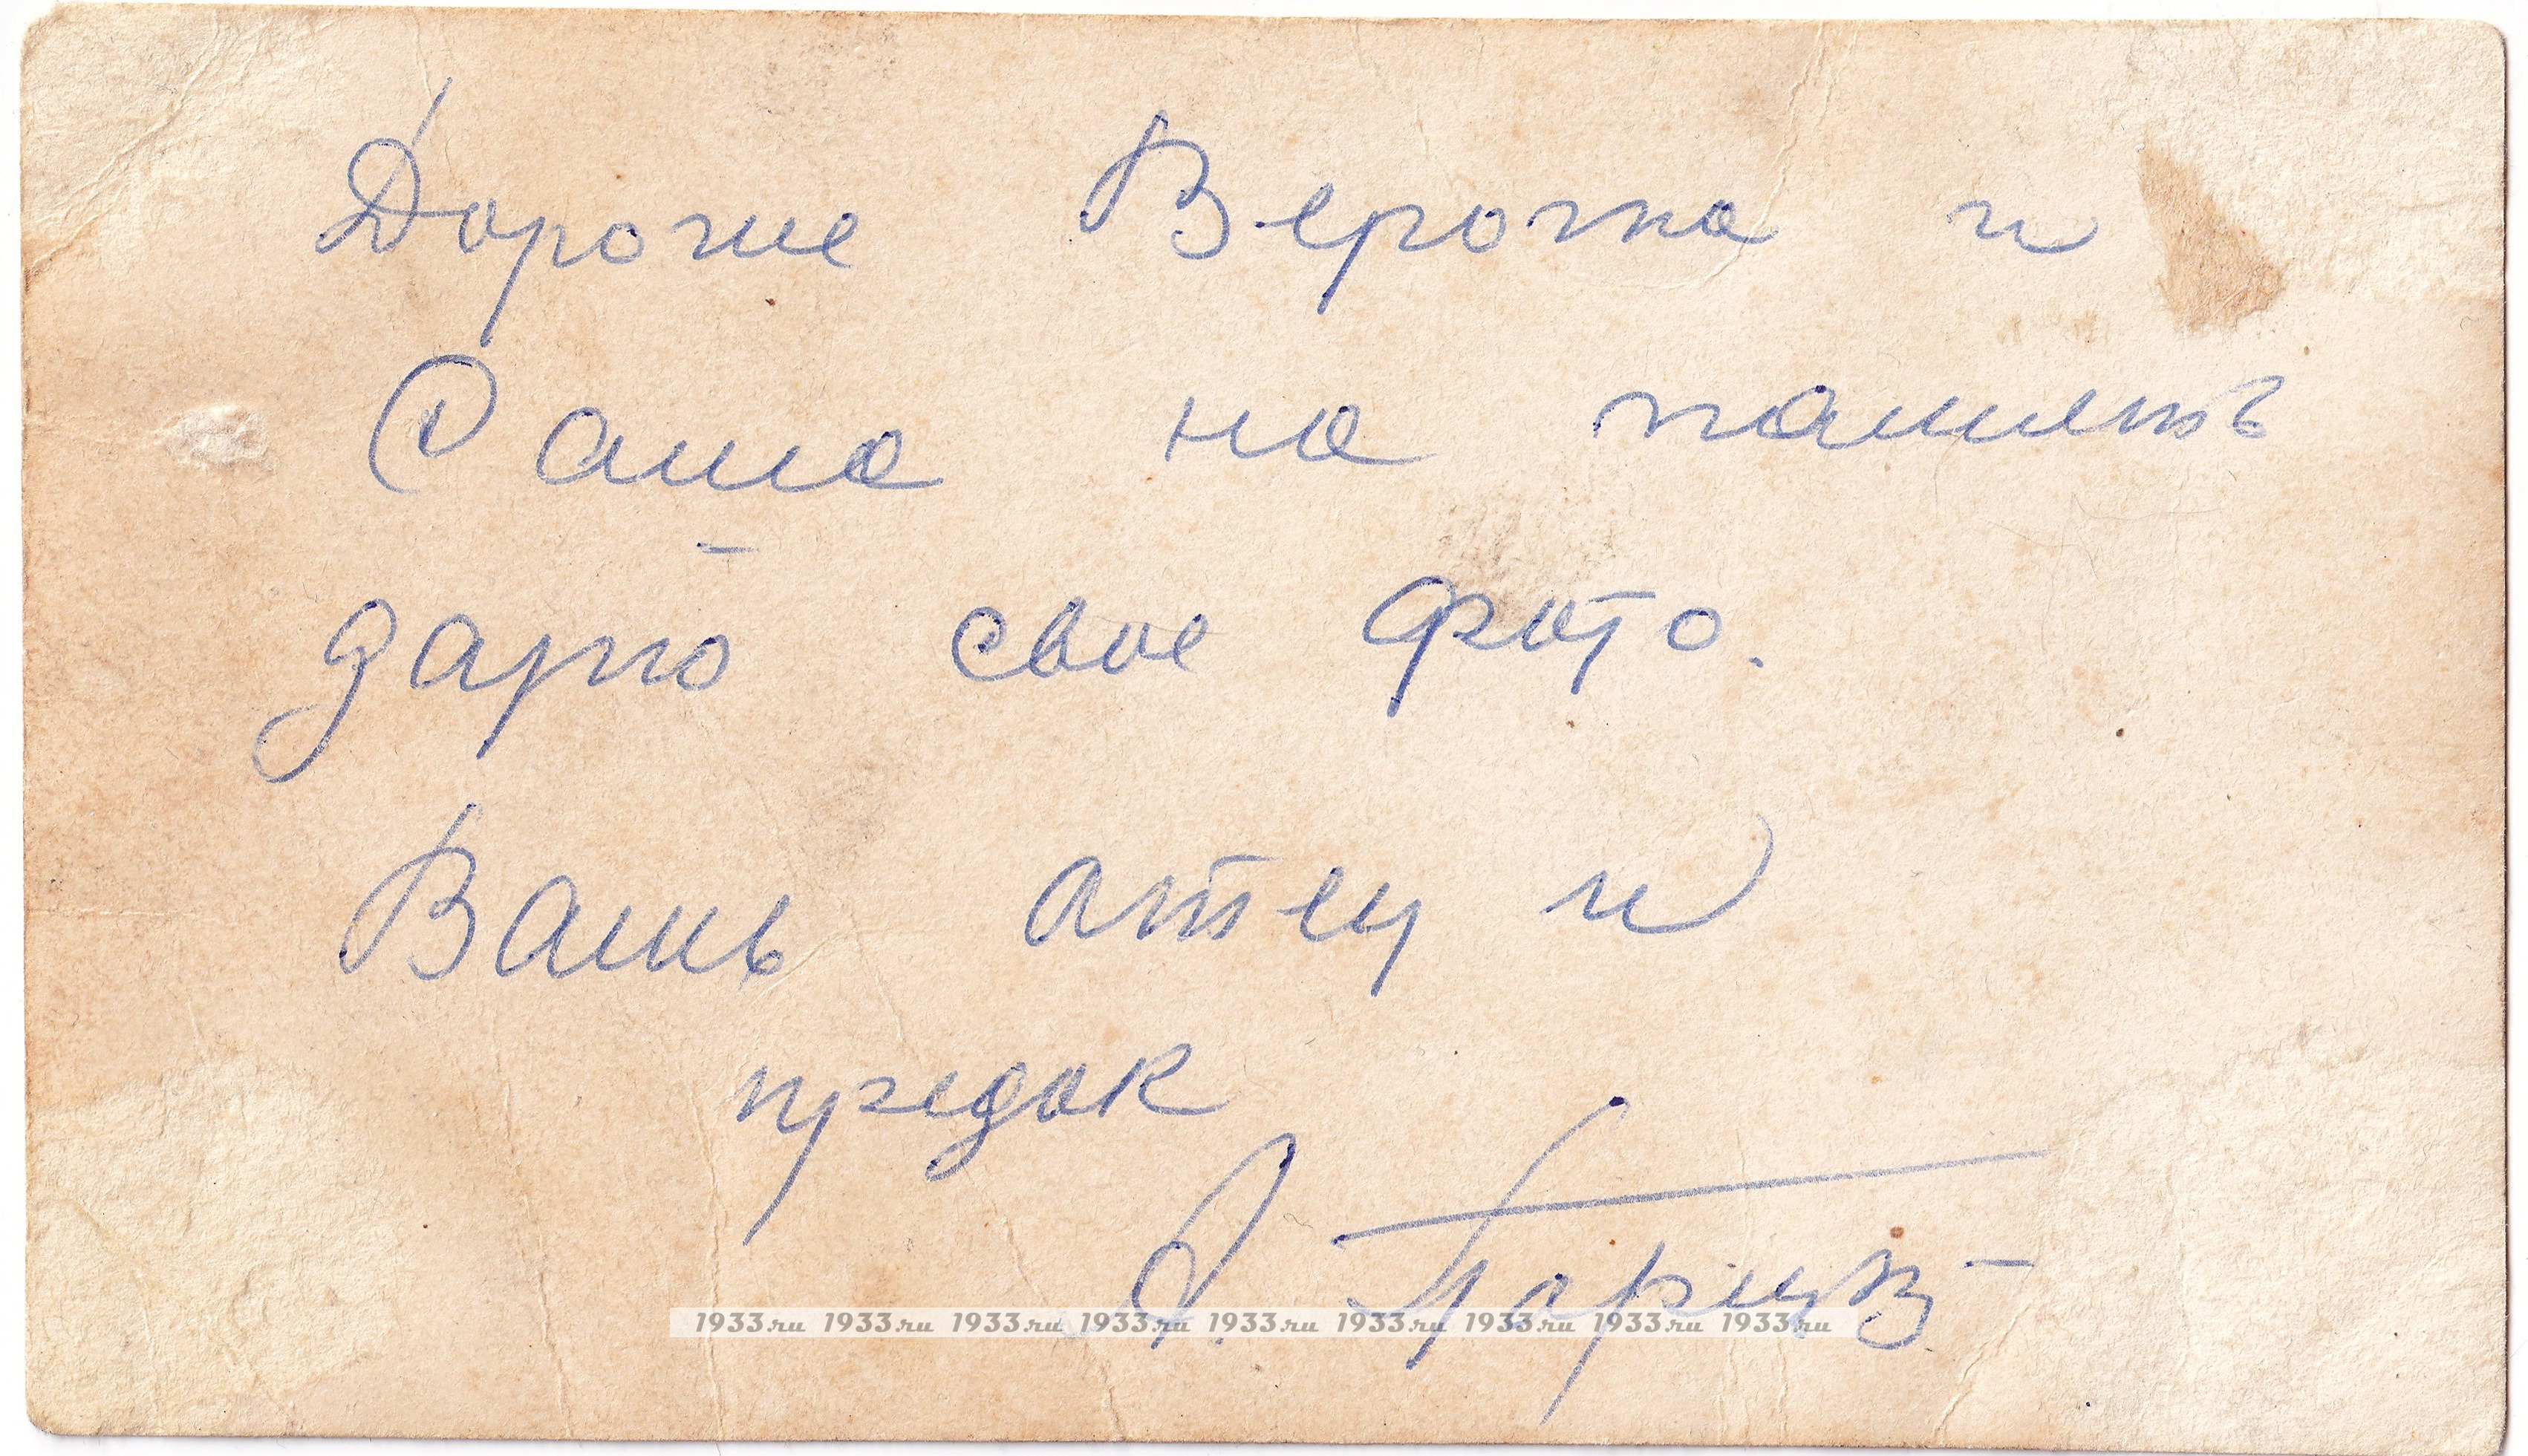 Дорогие Верочка и
Саша на память
дарю свое фото.
Вашь отец и
предок
1933.ru 1933.ru 1933.ru 1933.ru 1933.ru 1933.ru 1933.ru 1933.ru 1933.ru